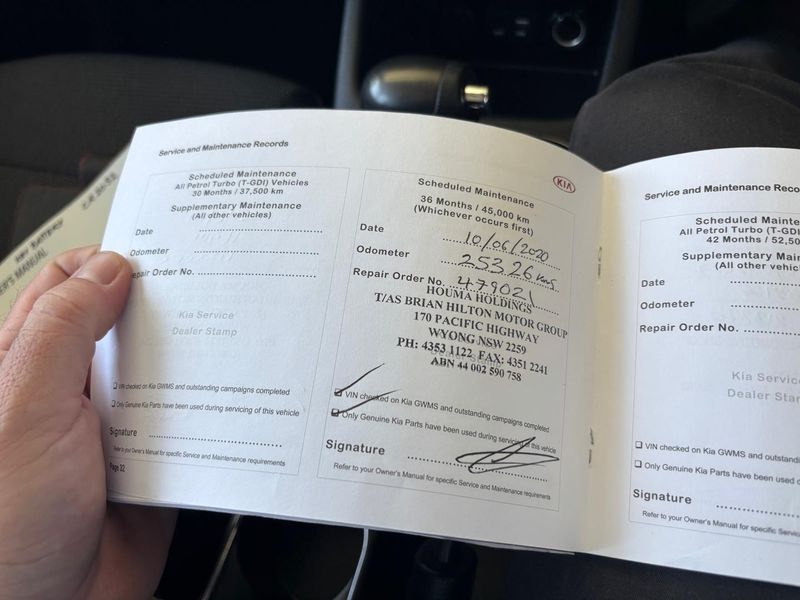 Service and Maintenance Records
Scheduled Maintenance
All Petrol Turbo (T-GDI) Vehicles
30 Months / 37,500 km
Supplementary Maintenance
(All other vehicles)
Date
Odometer
Repair Order No.
Kia Service
Dealer Stamp
VIN checked on Kia GWMS and outstanding campaigns completed
Only Genuine Kia Parts have been used during servicing of this vehicle
Signature
Refer to your Owner's Manual for specific Service and Maintenance requirements
Page 32
KIA
Scheduled Maintenance
36 Months / 45,000 km
(Whichever occurs first)
Date 10/06/2020
Odometer 25326 kms
Repair Order No. 479021
HOUMA HOLDINGS
T/AS BRIAN HILTON MOTOR GROUP
170 PACIFIC HIGHWAY
WYONG NSW 2259
PH: 4353 1122 FAX: 4351 2241
ABN 44 002 590 758
VIN checked on Kia GWMS and outstanding campaigns completed
Only Genuine Kia Parts have been used during servicing of this vehicle
Signature
Refer to your Owner's Manual for specific Service and Maintenance requirements
Service and Maintenance Reco
Scheduled Mainte
All Petrol Turbo (T-GDI)
42 Months / 52,50
Supplementary Ma
(All other vehic
Date
Odometer
Repair Order No.
Kia Service
Dealer Stam
VIN checked on Kia GWMS and outstanding camp
Only Genuine Kia Parts have been used d
Signature
Refer to your Owner's Manual for specific Servic
MANUAL